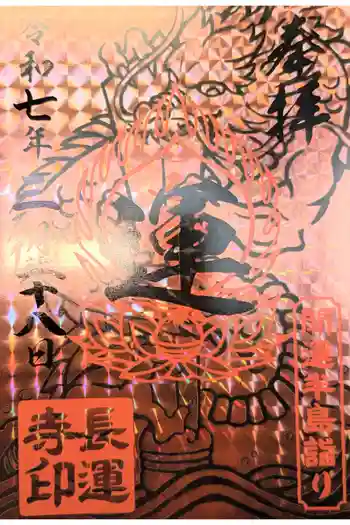 奉拝
運
開運 島詣り
令和七年 月 十八日
長運
寺印